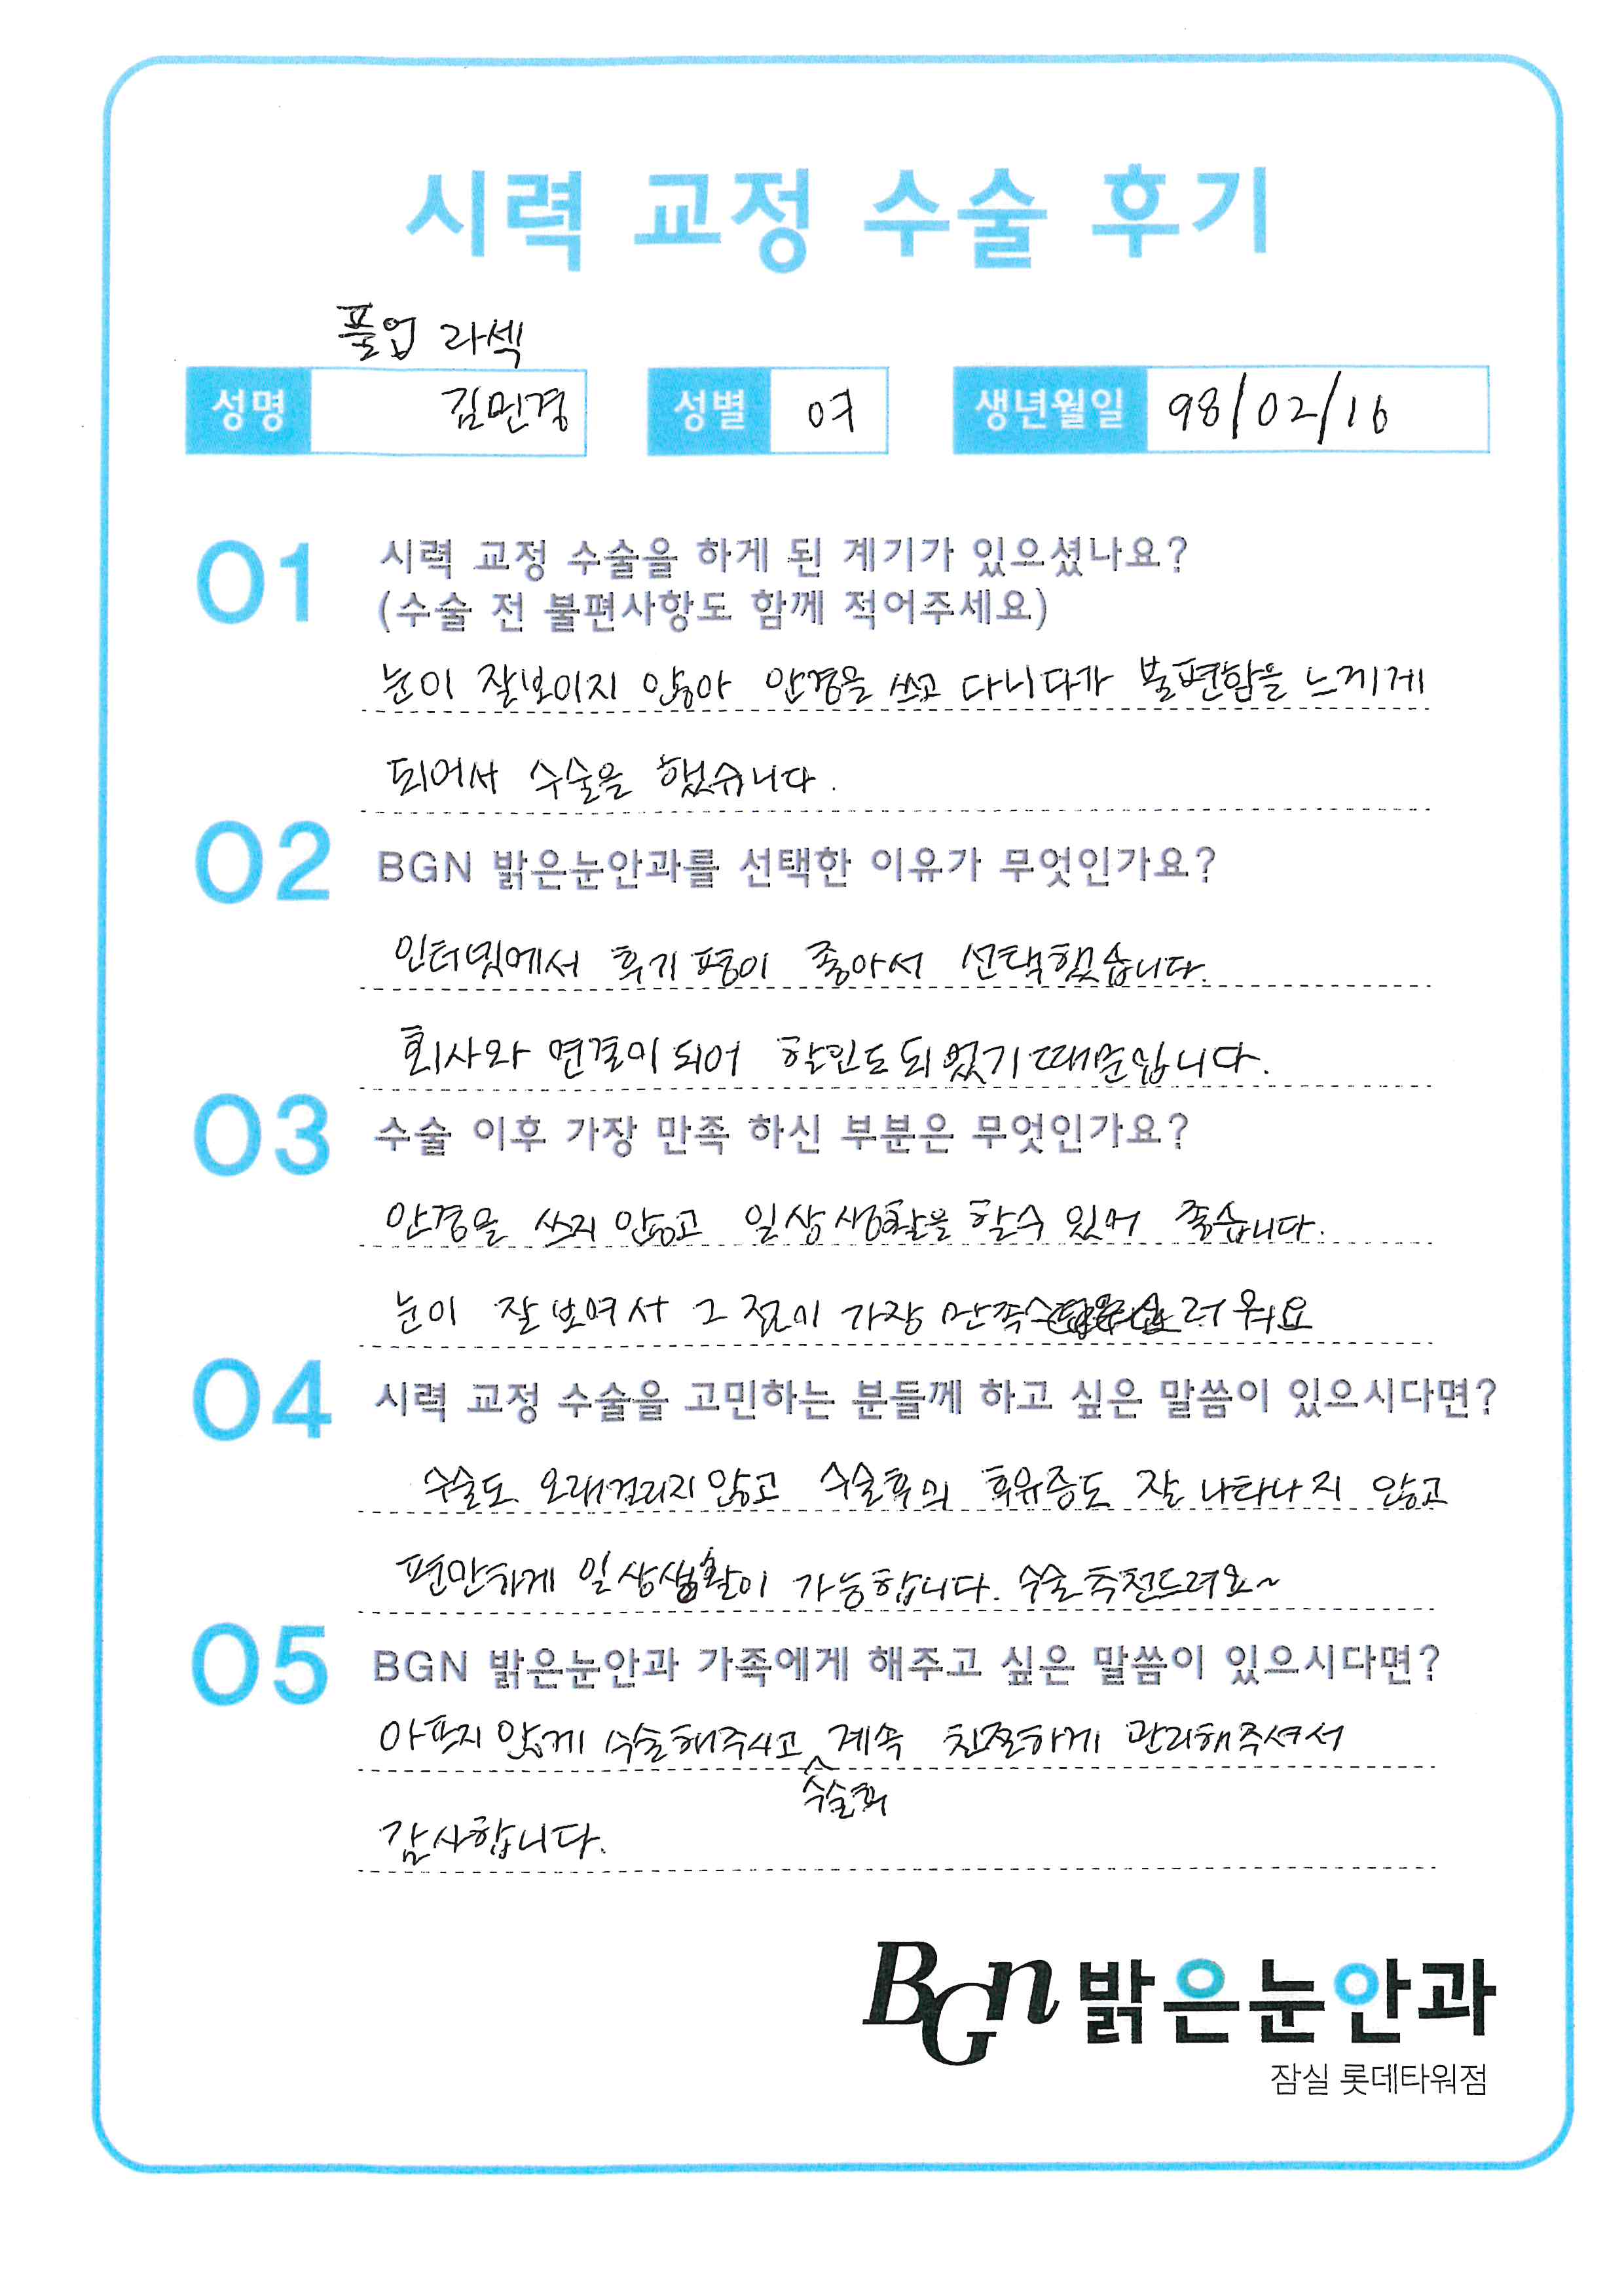 시력 교정 수술 후기
풀업 라섹
성명 김민경 성별 여 생년월일 98/02/16
01 시력 교정 수술을 하게 된 계기가 있으셨나요?
(수술 전 불편사항도 함께 적어주세요)
눈이 잘보이지 않아 안경을 쓰고 다니다가 불편함을 느끼게
되어서 수술을 했습니다.
02 BGN 밝은눈안과를 선택한 이유가 무엇인가요?
인터넷에서 후기 평이 좋아서 선택했습니다.
회사와 연결이 되어 할인도 되었기 때문입니다.
03 수술 이후 가장 만족 하신 부분은 무엇인가요?
안경을 쓰지 않고 일상생활을 할수 있어 좋습니다.
눈이 잘 보여서 그 점이 가장 만족스러워요
04 시력 교정 수술을 고민하는 분들께 하고 싶은 말씀이 있으시다면?
수술도 오래걸리지 않고 수술후의 후유증도 잘 나타나지 않고
편안하게 일상생활이 가능합니다. 수술 추천드려요~
05 BGN 밝은눈안과 가족에게 해주고 싶은 말씀이 있으시다면?
아프지 않게 수술해주시고 계속 친절하게 관리해주셔서
수술후
감사합니다.
BGN 밝은눈안과
잠실 롯데타워점